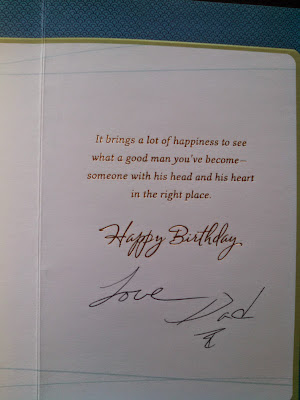 It brings a lot of happiness to see
what a good man you've become—
someone with his head and his heart
in the right place.
Happy Birthday
Love Dad